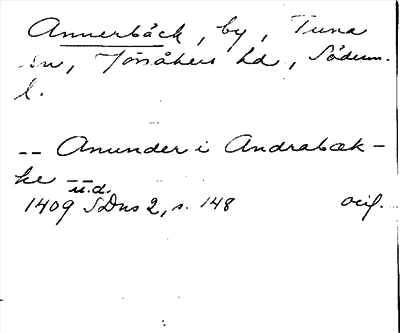 Annerbäck, by, Tuna
sn, Jönåkers hd, Söderm.
l.
-- Anunder i Andrabæk-
ke -- u.d.
1409 SDns 2, s. 148 orig.